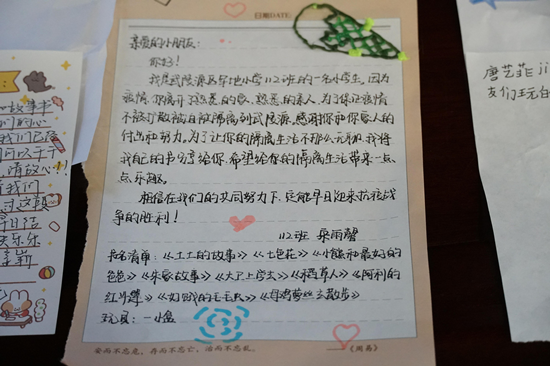 日期DATE:
亲爱的小朋友：
你好！
我是武陵源区军地小学112班的一名小学生，因为
疫情，你离开了熟悉的家，熟悉的亲人，为了保证疫情
不被扩散被且被隔离到武陵源，感谢你和你家人的
付出和努力。为了让你的隔离生活不那么无聊，我将
我自己的书分享给你，希望给你的隔离生活带来一点
点乐趣。
相信在我们的共同努力下，定能早日迎来抗疫战
争的胜利！
112班
书名清单：《土土的故事》《七色花》《小熊和最好的
爸爸》《朱家故事》《大卫上学去》《稻草人》《阿利的
红斗篷》《母鸡萝丝去散步》
玩具：一小盒
安而不忘危，存而不忘亡，治而不忘乱。 ——《周易》
唐艺菲
友们玩的
故事书
请放心!!
我们